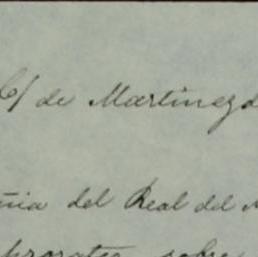 C/ de Martinez d
ñia del Real del M
prorateo sobre